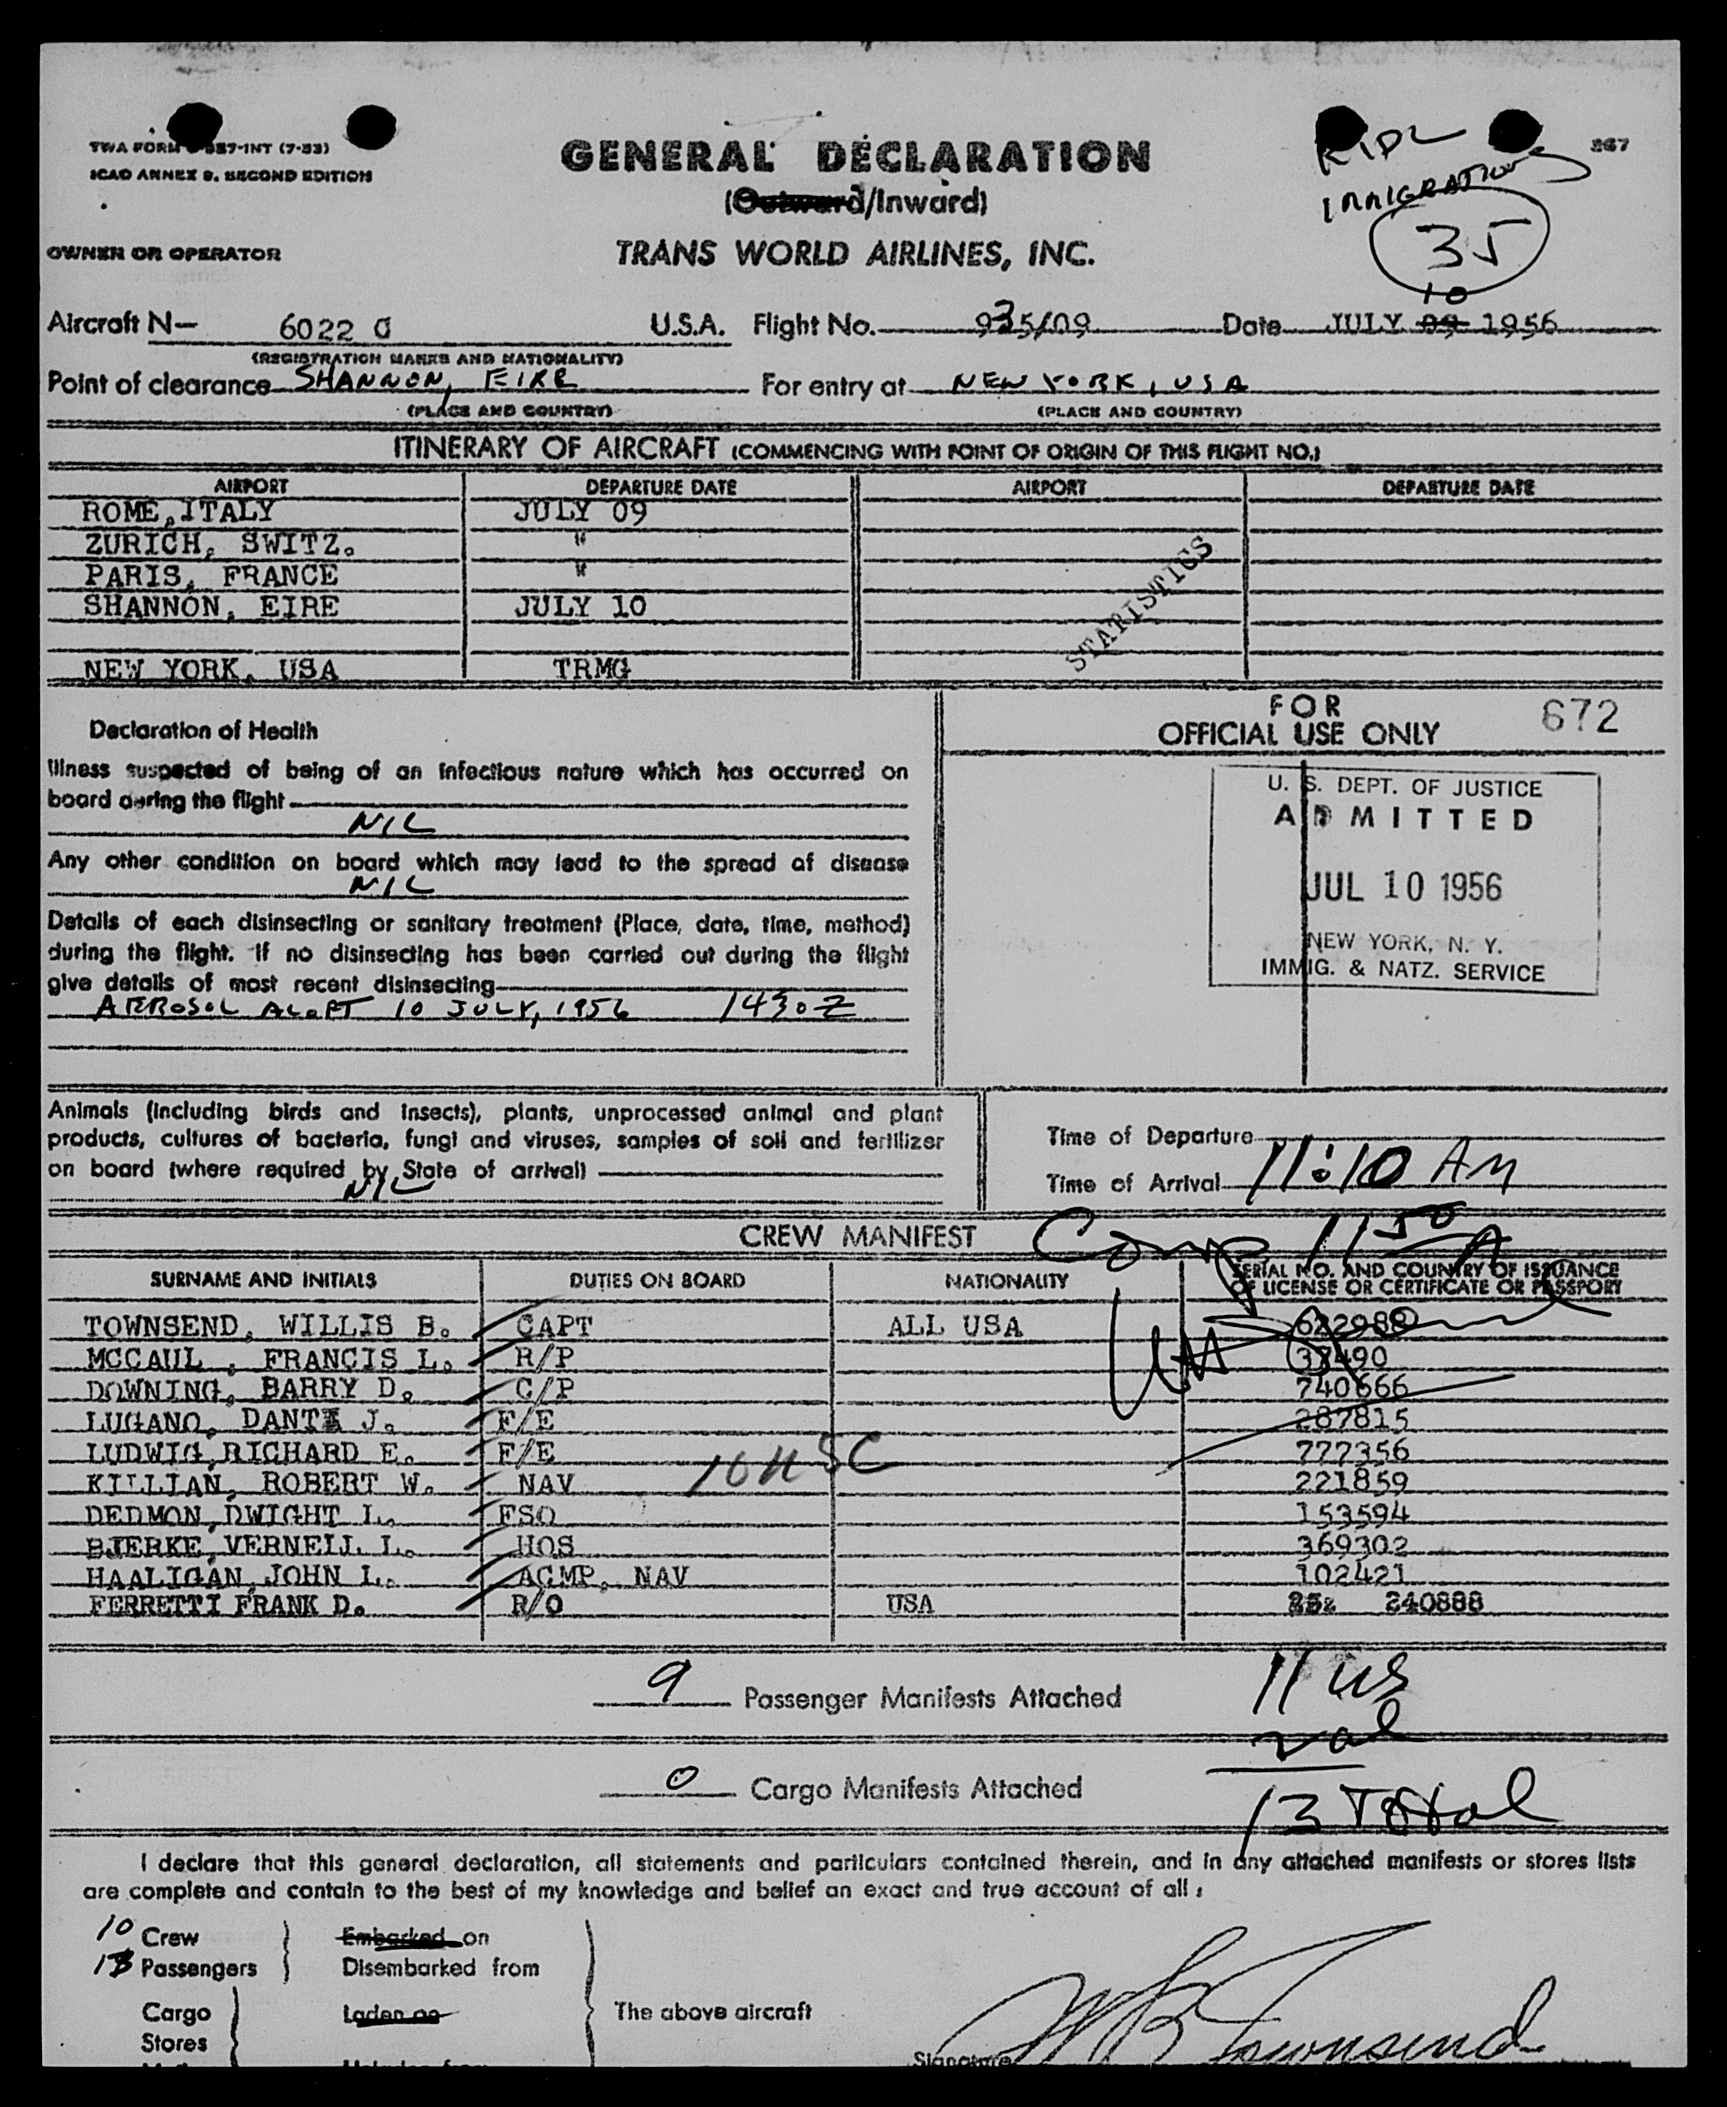 TWA FORM 587-INT (7-53)
ICAO ANNEX 9. SECOND EDITION
GENERAL DECLARATION
(Outward/Inward)
267
IMMIGRATION
35
OWNER OR OPERATOR
TRANS WORLD AIRLINES, INC.
10
Aircraft N— 6022 C U.S.A. Flight No. 935/09 Date JULY 09 1956
(REGISTRATION MARKS AND NATIONALITY)
Point of clearance SHANNON, EIRE For entry at NEW YORK, USA
(PLACE AND COUNTRY) (PLACE AND COUNTRY)
ITINERARY OF AIRCRAFT (COMMENCING WITH POINT OF ORIGIN OF THIS FLIGHT NO.)
AIRPORT DEPARTURE DATE AIRPORT DEPARTURE DATE
ROME, ITALY JULY 09
ZURICH, SWITZ. "
PARIS, FRANCE "
SHANNON, EIRE JULY 10
STATISTICS
NEW YORK, USA TRMG
FOR
OFFICIAL USE ONLY
672
Declaration of Health
Illness suspected of being of an infectious nature which has occurred on
board during the flight
NIL
Any other condition on board which may lead to the spread of disease
NIL
Details of each disinsecting or sanitary treatment (Place, date, time, method)
during the flight. If no disinsecting has been carried out during the flight
give details of most recent disinsecting
AEROSOL ALOFT 10 JULY, 1956 1430Z
U. S. DEPT. OF JUSTICE
ADMITTED
JUL 10 1956
NEW YORK, N. Y.
IMMIG. & NATZ. SERVICE
Animals (including birds and insects), plants, unprocessed animal and plant
products, cultures of bacteria, fungi and viruses, samples of soil and fertilizer
on board (where required by State of arrival)
NIL
Time of Departure
Time of Arrival 11:10 AM
CREW MANIFEST
Comp 1150 A
SURNAME AND INITIALS DUTIES ON BOARD NATIONALITY SERIAL NO. AND COUNTRY OF ISSUANCE
OF LICENSE OR CERTIFICATE OR PASSPORT
TOWNSEND, WILLIS B. CAPT ALL USA 622988
MCCAUL , FRANCIS L. R/P 37490
DOWNING, BARRY D. C/P 740666
LUGANO, DANTE J. F/E 287815
LUDWIG, RICHARD E. F/E 777356
10 USC
KILLIAN, ROBERT W. NAV 221859
DEDMON, DWIGHT L. FSO 153594
BJERKE, VERNELL L. HOS 369302
HAALIGAN, JOHN L. ACMP, NAV 102421
FERRETTI FRANK D. R/O USA 240888
9 Passenger Manifests Attached
11 us
2 al
0 Cargo Manifests Attached
13 Total
I declare that this general declaration, all statements and particulars contained therein, and in any attached manifests or stores lists
are complete and contain to the best of my knowledge and belief an exact and true account of all:
10 Crew Embarked on
13 Passengers Disembarked from
Cargo Laden on The above aircraft
Stores
Signature W B Townsend